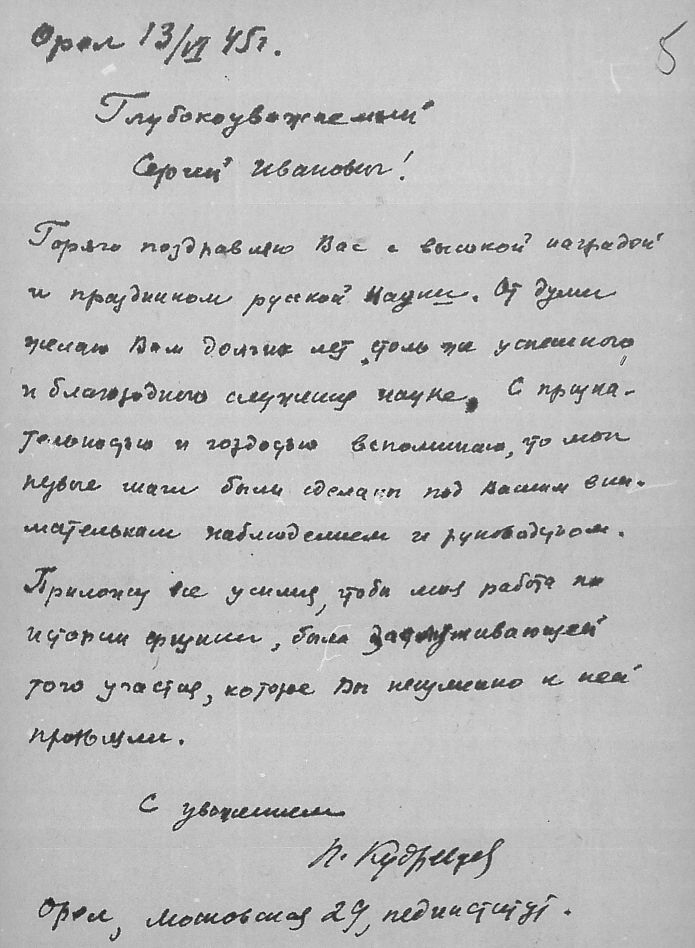 Орел 13/VI 45г.
5
Глубокоуважаемый
Сергей Иванович!
Горячо поздравляю Вас с высокой наградой
и праздником русской науки. От души
желаю Вам долгих лет столь же успешного
и благородного служения науке. С призна-
тельностью и гордостью вспоминаю, что мои
первые шаги были сделаны под Вашим вни-
мательным наблюдением и руководством.
Приложу все усилия, чтобы моя работа по
истории физики, была заслуживающей
того участия, которое Вы неизменно к ней
проявляли.
С уважением
П. Кудрявцев
Орел, Московская 29, пединститут.